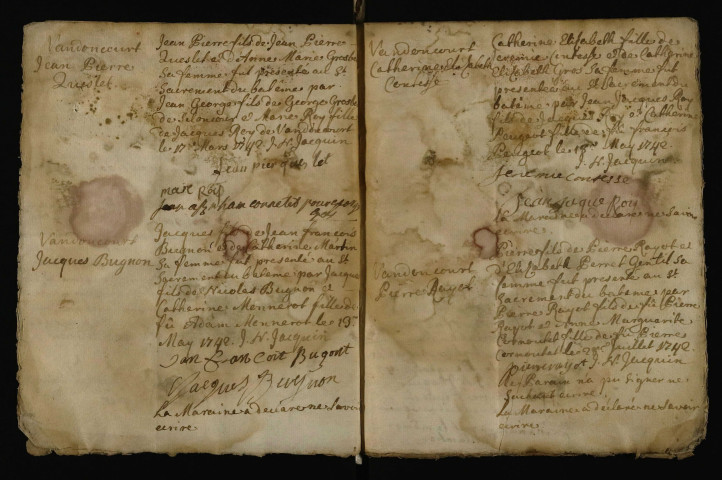 Vandoncourt
Jean Pierre
Quelet
Jean Pierre fils de Jean Pierre
Quelet et d'Anne Marie Grosbe
Sa femme fut présenté au St
Sacrement du batême par
Jean George fils de George Grosbe
de Seloncour et Marie Roy fille
de Jacques Roy de Vandoncourt
le 17e Mars 1742. J. N. Jacquin
Jean pier que let
marie Roy
Vandoncourt
Jacques Bugnon
Jacques fils de Jean François
Bugnon et de Catherine Martin
Sa femme fut présenté au St
Sacrement du batême par Jacque
fils de Nicolas Bugnon et
Catherine Monnerot fille de
fû Adam Monnerot le 19e
May 1742. J. N. Jacquin
Jacques Bugnon
La Maraine a declaré ne savoir
ecrire.
Vandoncourt
Catherine Elisabeth
Contesse
Catherine Elisabeth fille de
Contesse et de Catherine
Elisabeth Gros Sa femme fut
presentée au St Sacrement du
batême par Jean Jacques Roy
fils de Jacques Roy et Catherine
Peugeot fille de François
Peugeot le May 1742.
J. N. Jacquin
Contesse
Jean Jaque Roy
La Maraine a declaré ne Savoir
ecrire.
Vandoncourt
Pierre Rayot
Pierre fils de Pierre Rayot et
d'Elizabeth Perret Gentil Sa
femme fut presenté au St
Sacrement du batême par
Pierre Rayot fils de fû Pierre
Rayot et Anne Marguerite
Cornentet fille de fû Pierre
Cornentet le Juillet 1742.
pierre rayot J. N. Jacquin
Le Parain na pu Signer ne
Sachant ecrire.
La Maraine a declaré ne Savoir
ecrire.